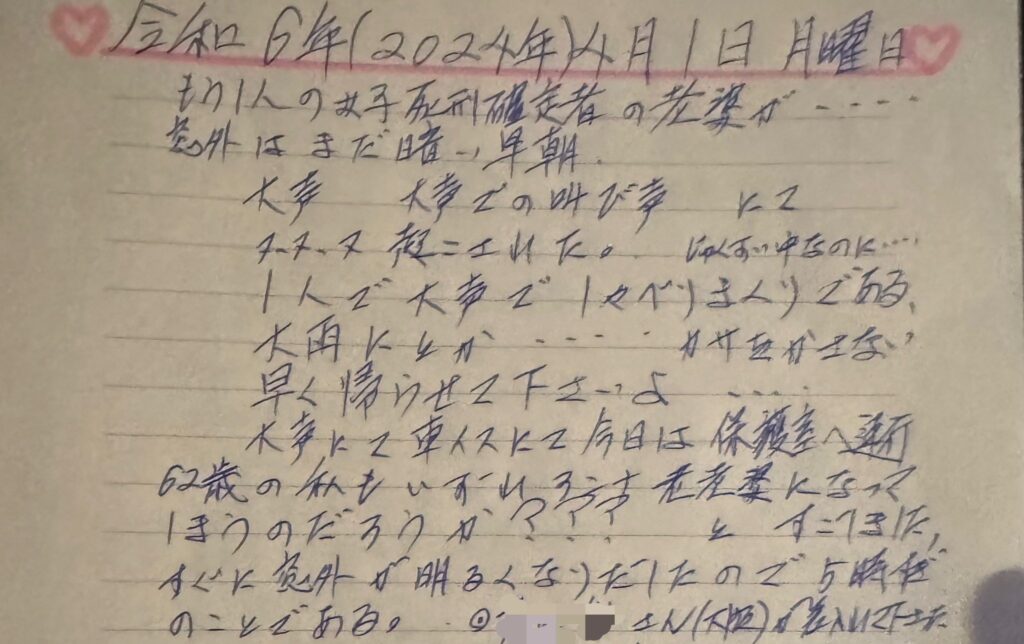 令和6年(2024年)4月1日 月曜日
もう1人の女子死刑確定者の老婆が‥‥
窓外はまだ暗い早朝.
大声 大声での叫び声 にて
ヌーヌーヌ 起こされた。 じゅくすい中なのに‥‥
1人で大声で1ゃべりまくりである,
大雨にとか ‥‥ カサをかさない
早く帰らせて下さいよ ‥‥
大声にて車イスにて今日は保護室へ連行
62歳の私もいずれ 老老婆になって
しまうのだろうか??? と
すぐに窓外が明るくなりだしたので5時だ
のことである。 ◎ さん(大阪)が差入れして下さった